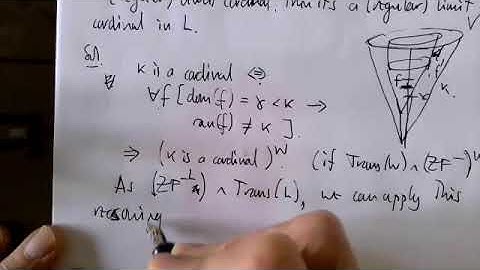 (regular) limit cardinal. Then it's a (regular) limit
cardinal in L. V
Sol.
κ is a cardinal ⇔
∀f [dom(f) = γ < κ →
ran(f) ≠ κ ].
f
γ
κ.
⇒ (κ is a cardinal)^W (if Trans(W) ∧ (ZF⁻)^W
As (ZF⁻)^L ∧ Trans(L), we can apply this
reasoning